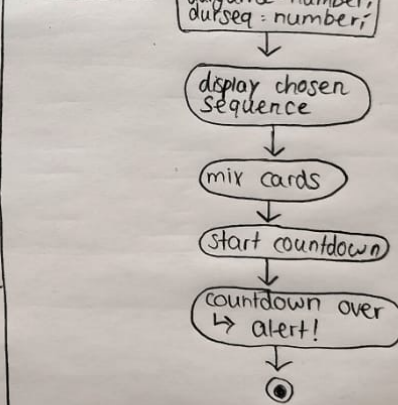 number;
durseq : number;
display chosen
sequence
mix cards
start countdown
countdown over
↳ alert!